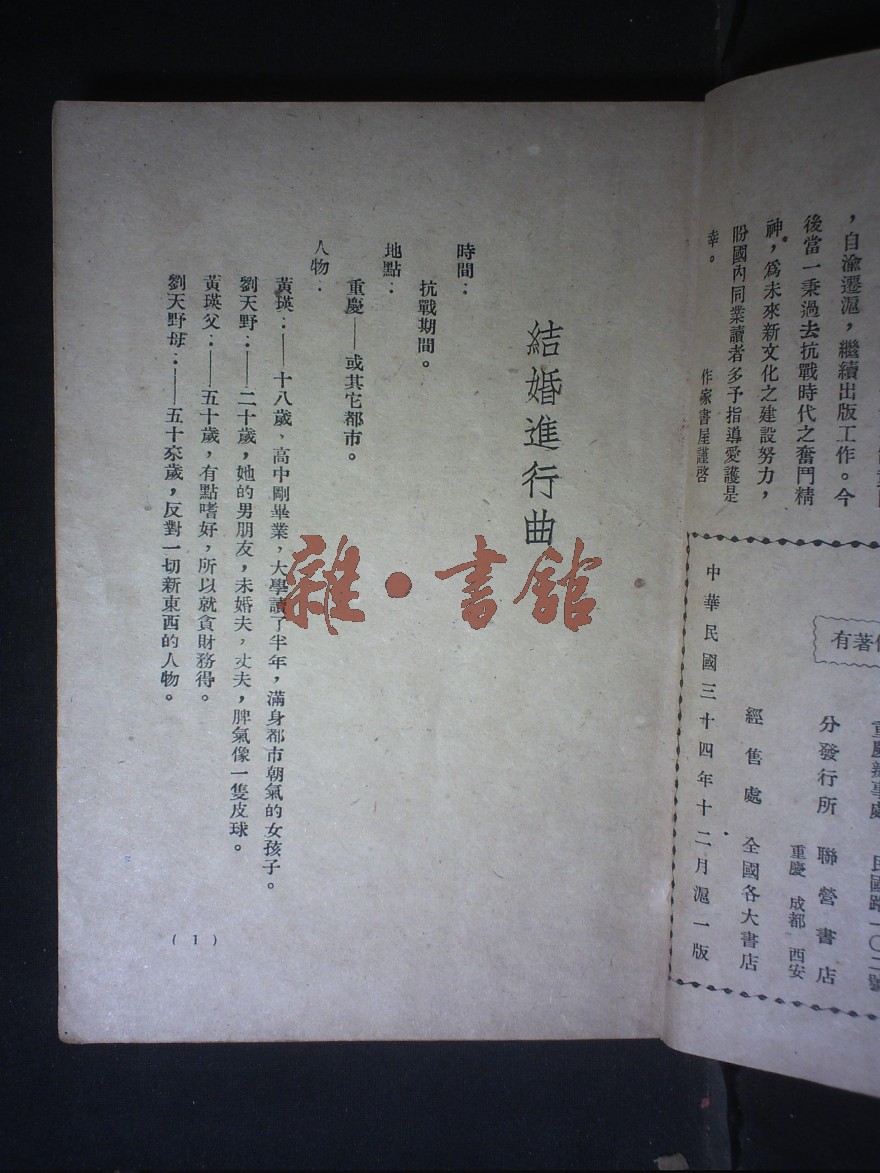 ，自渝遷滬，繼續出版工作。今
後當一秉過去抗戰時代之奮鬥精
神，爲未來新文化之建設努力，
盼國內同業讀者多予指導愛護是
幸。
作家書屋謹啓
有著作
重慶辦事處 民國路一〇二號
分發行所 聯營書店
重慶 成都 西安
經售處 全國各大書店
中華民國三十四年十二月滬一版
結婚進行曲
時間：
抗戰期間。
地點：
重慶——或其它都市。
人物：
黃瑛：——十八歲，高中剛畢業，大學讀了半年，滿身都市朝氣的女孩子。
劉天野：——二十歲，她的男朋友，未婚夫，丈夫，脾氣像一隻皮球。
黃瑛父：——五十歲，有點嗜好，所以就貪財務得。
劉天野母：——五十來歲，反對一切新東西的人物。
(1)
雜·書館